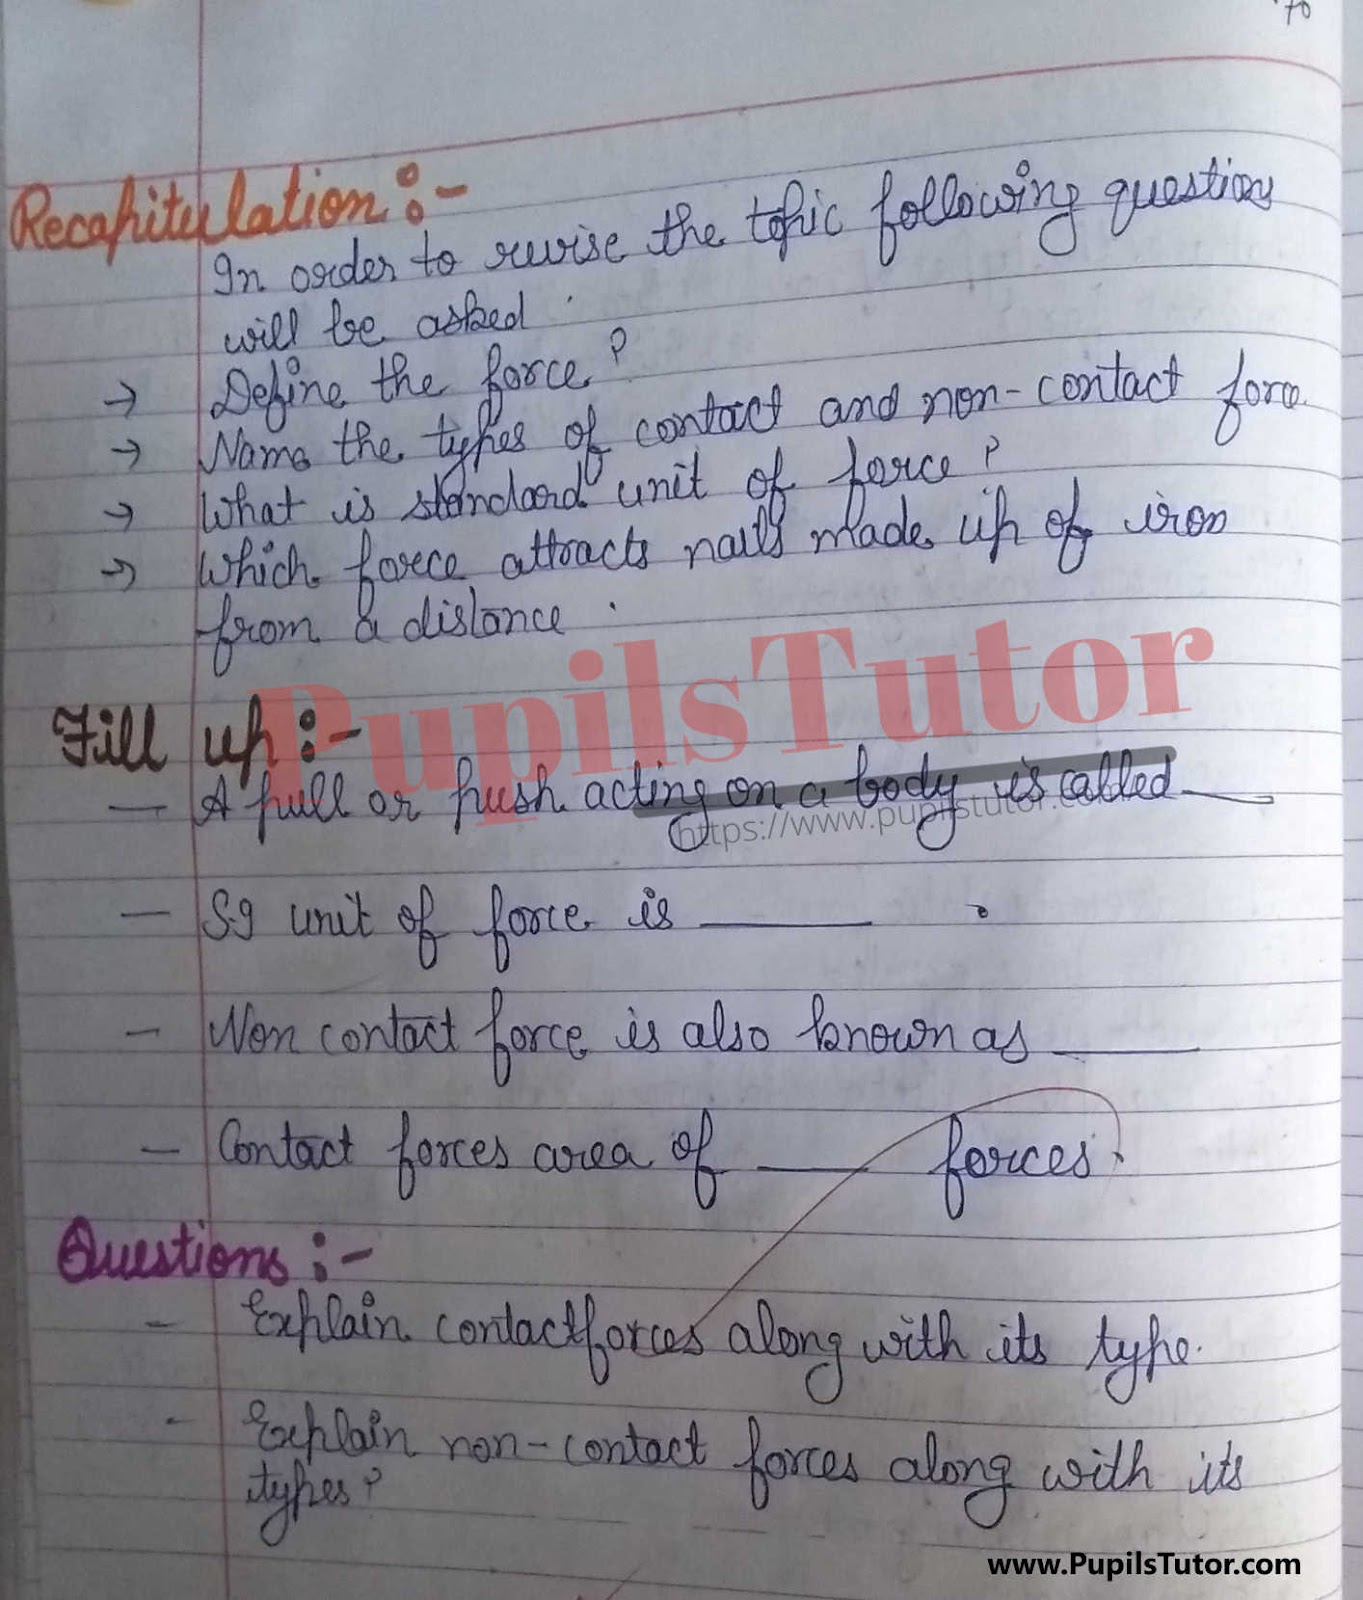 70
Recapitulation :-
In order to revise the topic following questions
will be asked.
→ Define the force?
→ Name the types of contact and non-contact force.
→ What is standard unit of force?
→ Which force attracts nails made up of iron
from a distance.
PupilsTutor
Fill up :-
– A pull or push acting on a body is called ___
https://www.pupilstutor.com
– SI unit of force is ___ .
– Non contact force is also known as ___
– Contact forces area of ___ forces.
Questions :-
– Explain contact forces along with its type.
– Explain non-contact forces along with its
types?
www.PupilsTutor.com